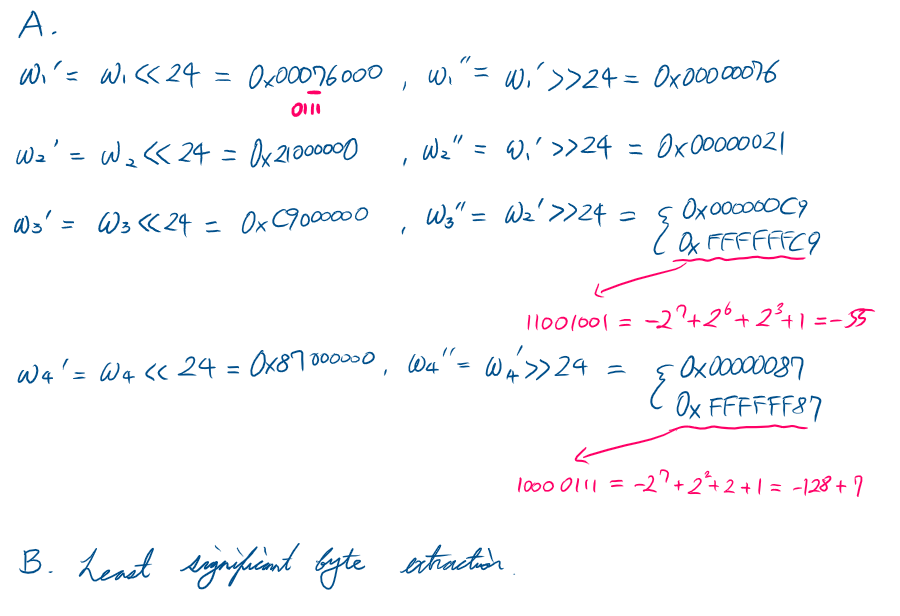 A.
ω₁' = ω₁ << 24 = 0x00076000 , ω₁'' = ω₁' >> 24 = 0x00000076
0111
ω₂' = ω₂ << 24 = 0x21000000 , ω₂'' = ω₁' >> 24 = 0x00000021
ω₃' = ω₃ << 24 = 0xC9000000 , ω₃'' = ω₂' >> 24 = { 0x000000C9
0xFFFFFFC9
11001001 = -2⁷ + 2⁶ + 2³ + 1 = -55
ω₄' = ω₄ << 24 = 0x87000000 , ω₄'' = ω₄' >> 24 = { 0x00000087
0xFFFFFF87
10000111 = -2⁷ + 2² + 2 + 1 = -128 + 7
B. Least significant byte extraction.